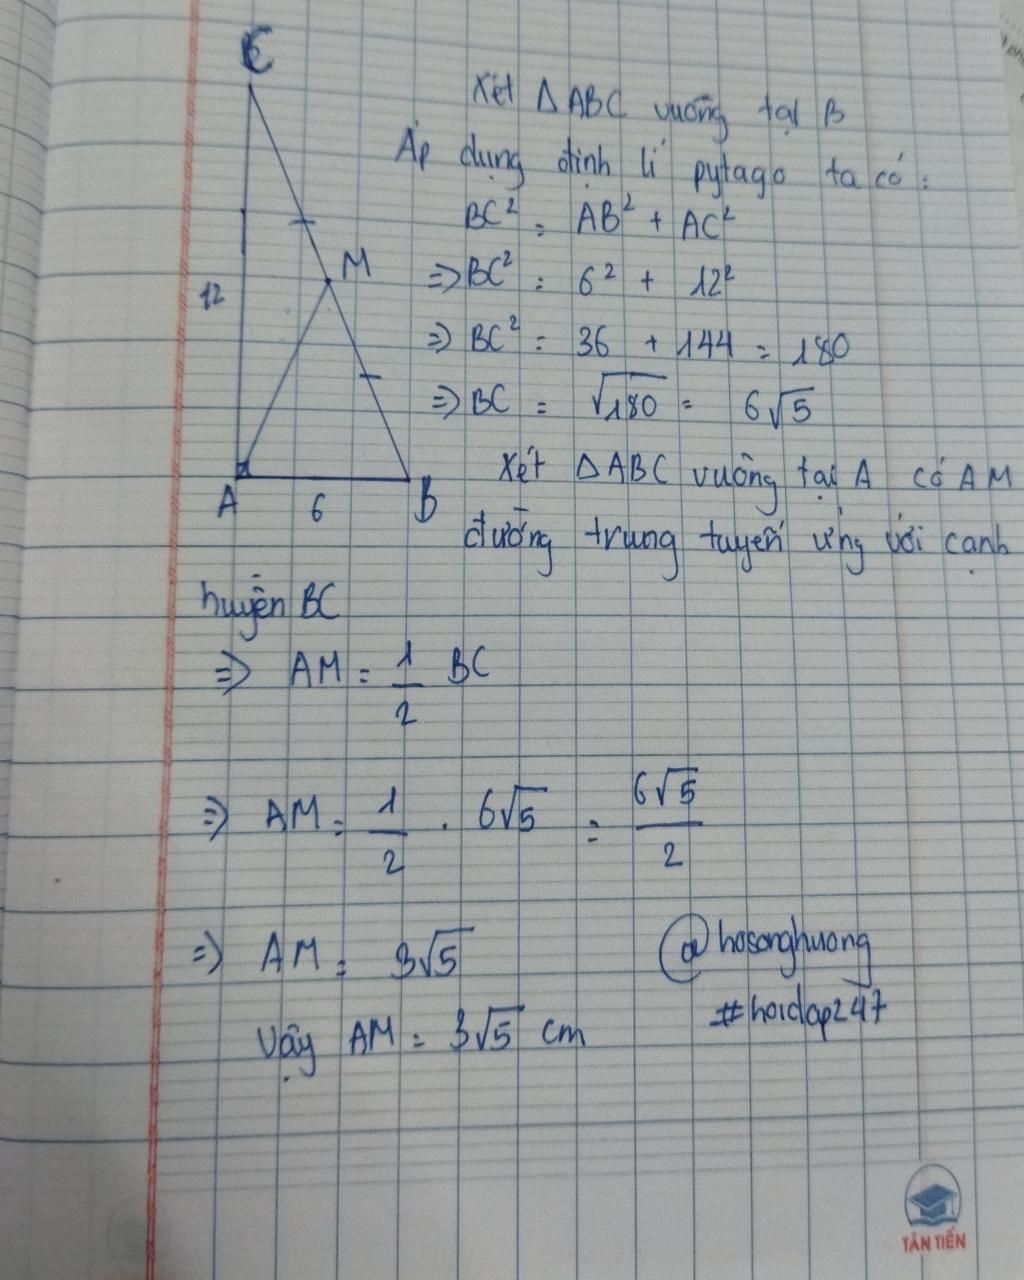 C
Xét ΔABC vuông tại B
Áp dụng định lí pytago ta có:
BC² = AB² + AC²
M
⇒ BC² = 6² + 12²
12
⇒ BC² = 36 + 144 = 180
⇒ BC = √180 = 6√5
Xét ΔABC vuông tại A có AM
A 6 B
đường trung tuyến ứng với cạnh
huyền BC
⇒ AM = 1/2 BC
⇒ AM = 1/2 . 6√5 = 6√5/2
⇒ AM = 3√5
@hosonghuong
#hoidap247
Vậy AM = 3√5 cm
TÂN TIẾN